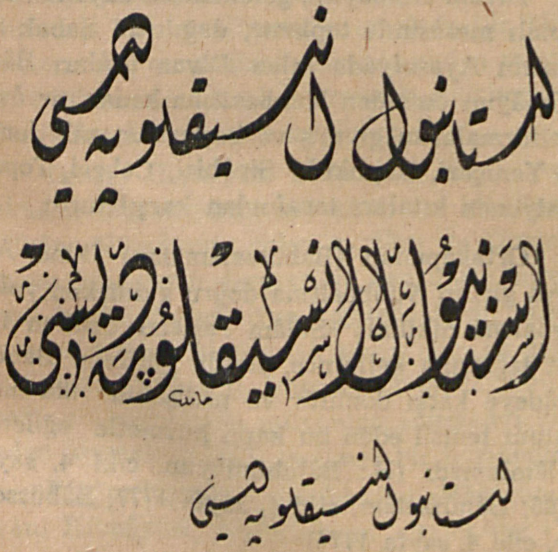 استانبول انسیقلوپه دیسی
استانبول انسیقلوپه دیسی
حامد
استانبول انسیقلوپه دیسی